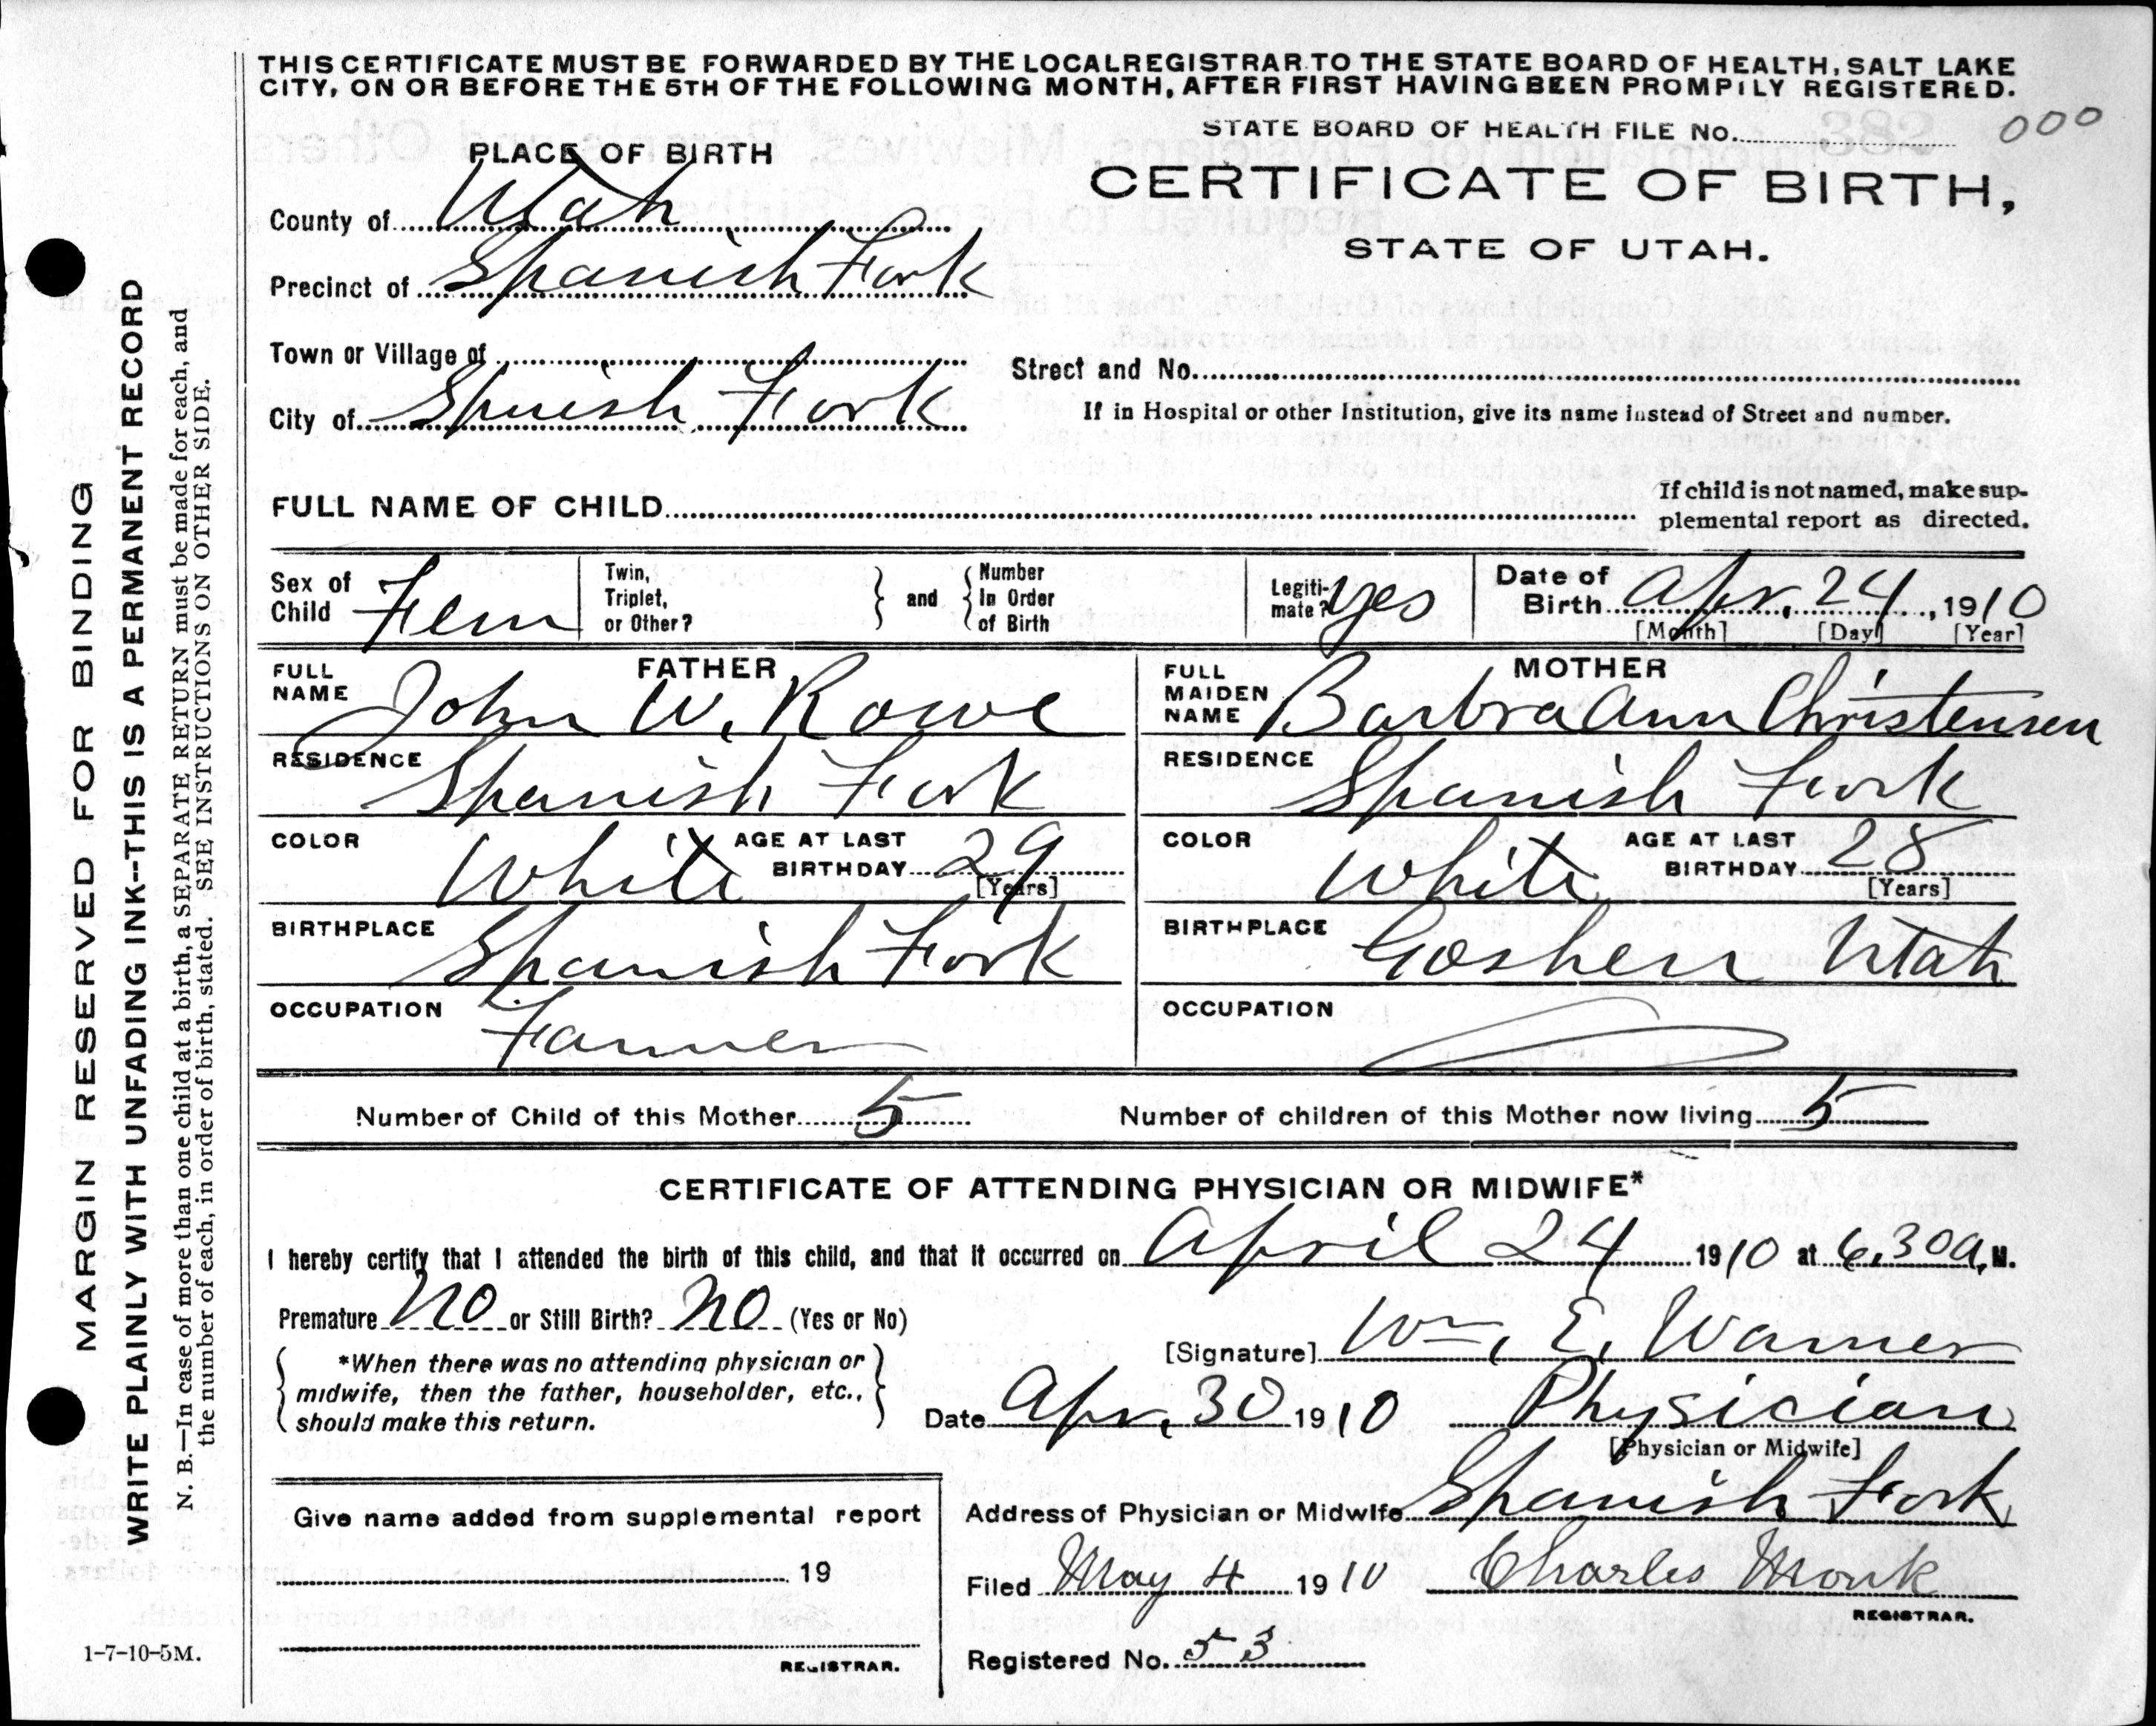 THIS CERTIFICATE MUST BE FORWARDED BY THE LOCAL REGISTRAR TO THE STATE BOARD OF HEALTH, SALT LAKE
CITY, ON OR BEFORE THE 5TH OF THE FOLLOWING MONTH, AFTER FIRST HAVING BEEN PROMPILY REGISTERED.
STATE BOARD OF HEALTH FILE No. 000
PLACE OF BIRTH
CERTIFICATE OF BIRTH,
STATE OF UTAH.
County of Utah
Precinct of Spanish Fork
Town or Village of
Street and No.
City of Spnish Fork
If in Hospital or other Institution, give its name instead of Street and number.
FULL NAME OF CHILD
If child is not named, make sup-
plemental report as directed.
Sex of Child Fem
Twin, Triplet, or Other? and Number In Order of Birth
Legiti-mate? yes
Date of Birth Apr. 24, 1910
[Month] [Day] [Year]
FATHER
FULL NAME John W. Rowe
RESIDENCE Spanish Fork
COLOR White AGE AT LAST BIRTHDAY 29 [Years]
BIRTHPLACE Spanish Fork
OCCUPATION Farmer
MOTHER
FULL MAIDEN NAME Barbra Ann Christensen
RESIDENCE Spanish Fork
COLOR White AGE AT LAST BIRTHDAY 28 [Years]
BIRTHPLACE Goshen Utah
OCCUPATION
Number of Child of this Mother 5 Number of children of this Mother now living 5
CERTIFICATE OF ATTENDING PHYSICIAN OR MIDWIFE*
I hereby certify that I attended the birth of this child, and that it occurred on April 24 1910 at 6.30 a, M.
Premature no or Still Birth? no (Yes or No)
*When there was no attending physician or
midwife, then the father, householder, etc.,
should make this return.
[Signature] Wm. E. Warner
Date Apr. 30 1910 Physician
[Physician or Midwife]
Address of Physician or Midwife Spanish Fork
Filed May 4 1910 Charles Monk
REGISTRAR.
Registered No. 53
Give name added from supplemental report
19
REGISTRAR.
1-7-10-5M.
MARGIN RESERVED FOR BINDING
WRITE PLAINLY WITH UNFADING INK--THIS IS A PERMANENT RECORD
N. B.—In case of more than one child at a birth, a SEPARATE RETURN must be made for each, and
the number of each, in order of birth, stated. SEE INSTRUCTIONS ON OTHER SIDE.